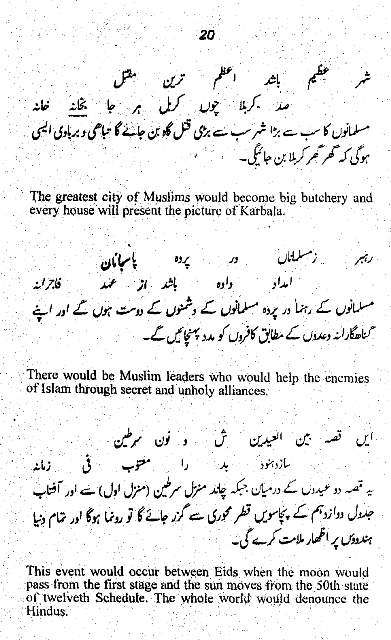 20
شہر عظیم باشد اعظم ترین مقتل
صد کربلا چوں کربل ہر جا بخانہ خانہ
مسلمانوں کا سب سے بڑا شہر سب سے بڑی قتل گاہ بن جائے گا تباہی و بربادی ایسی
ہوگی کہ گھر گھر کربلا بن جائیگی۔
The greatest city of Muslims would become big butchery and
every house will present the picture of Karbala.
رہبر زمسلماناں در پردہ پاسبانان
امداد دادہ باشد از عہد فاجرانہ
مسلمانوں کے رہنما در پردہ مسلمانوں کے دشمنوں کے دوست ہوں گے اور اپنے
گناھگارانہ وعدوں کے مطابق کافروں کو مدد پہنچائیں گے۔
There would be Muslim leaders who would help the enemies
of Islam through secret and unholy alliances.
ایں قصہ بین العیدین ش و نون سرطین
سازد ہنود بد را معتوب فی زمانہ
یہ قصہ دو عیدوں کے درمیان جبکہ چاند منزل سرطین (منزل اول) سے اور آفتاب
جدول دوازدہم کے پچاسویں قطر محوری سے گزر جائے گا تو رونما ہوگا اور تمام دنیا
ہندووں پر اظہار ملامت کرے گی۔
This event would occur between Eids when the moon would
pass from the first stage and the sun moves from the 50th state
of twelveth Schedule. The whole world would denounce the
Hindus.